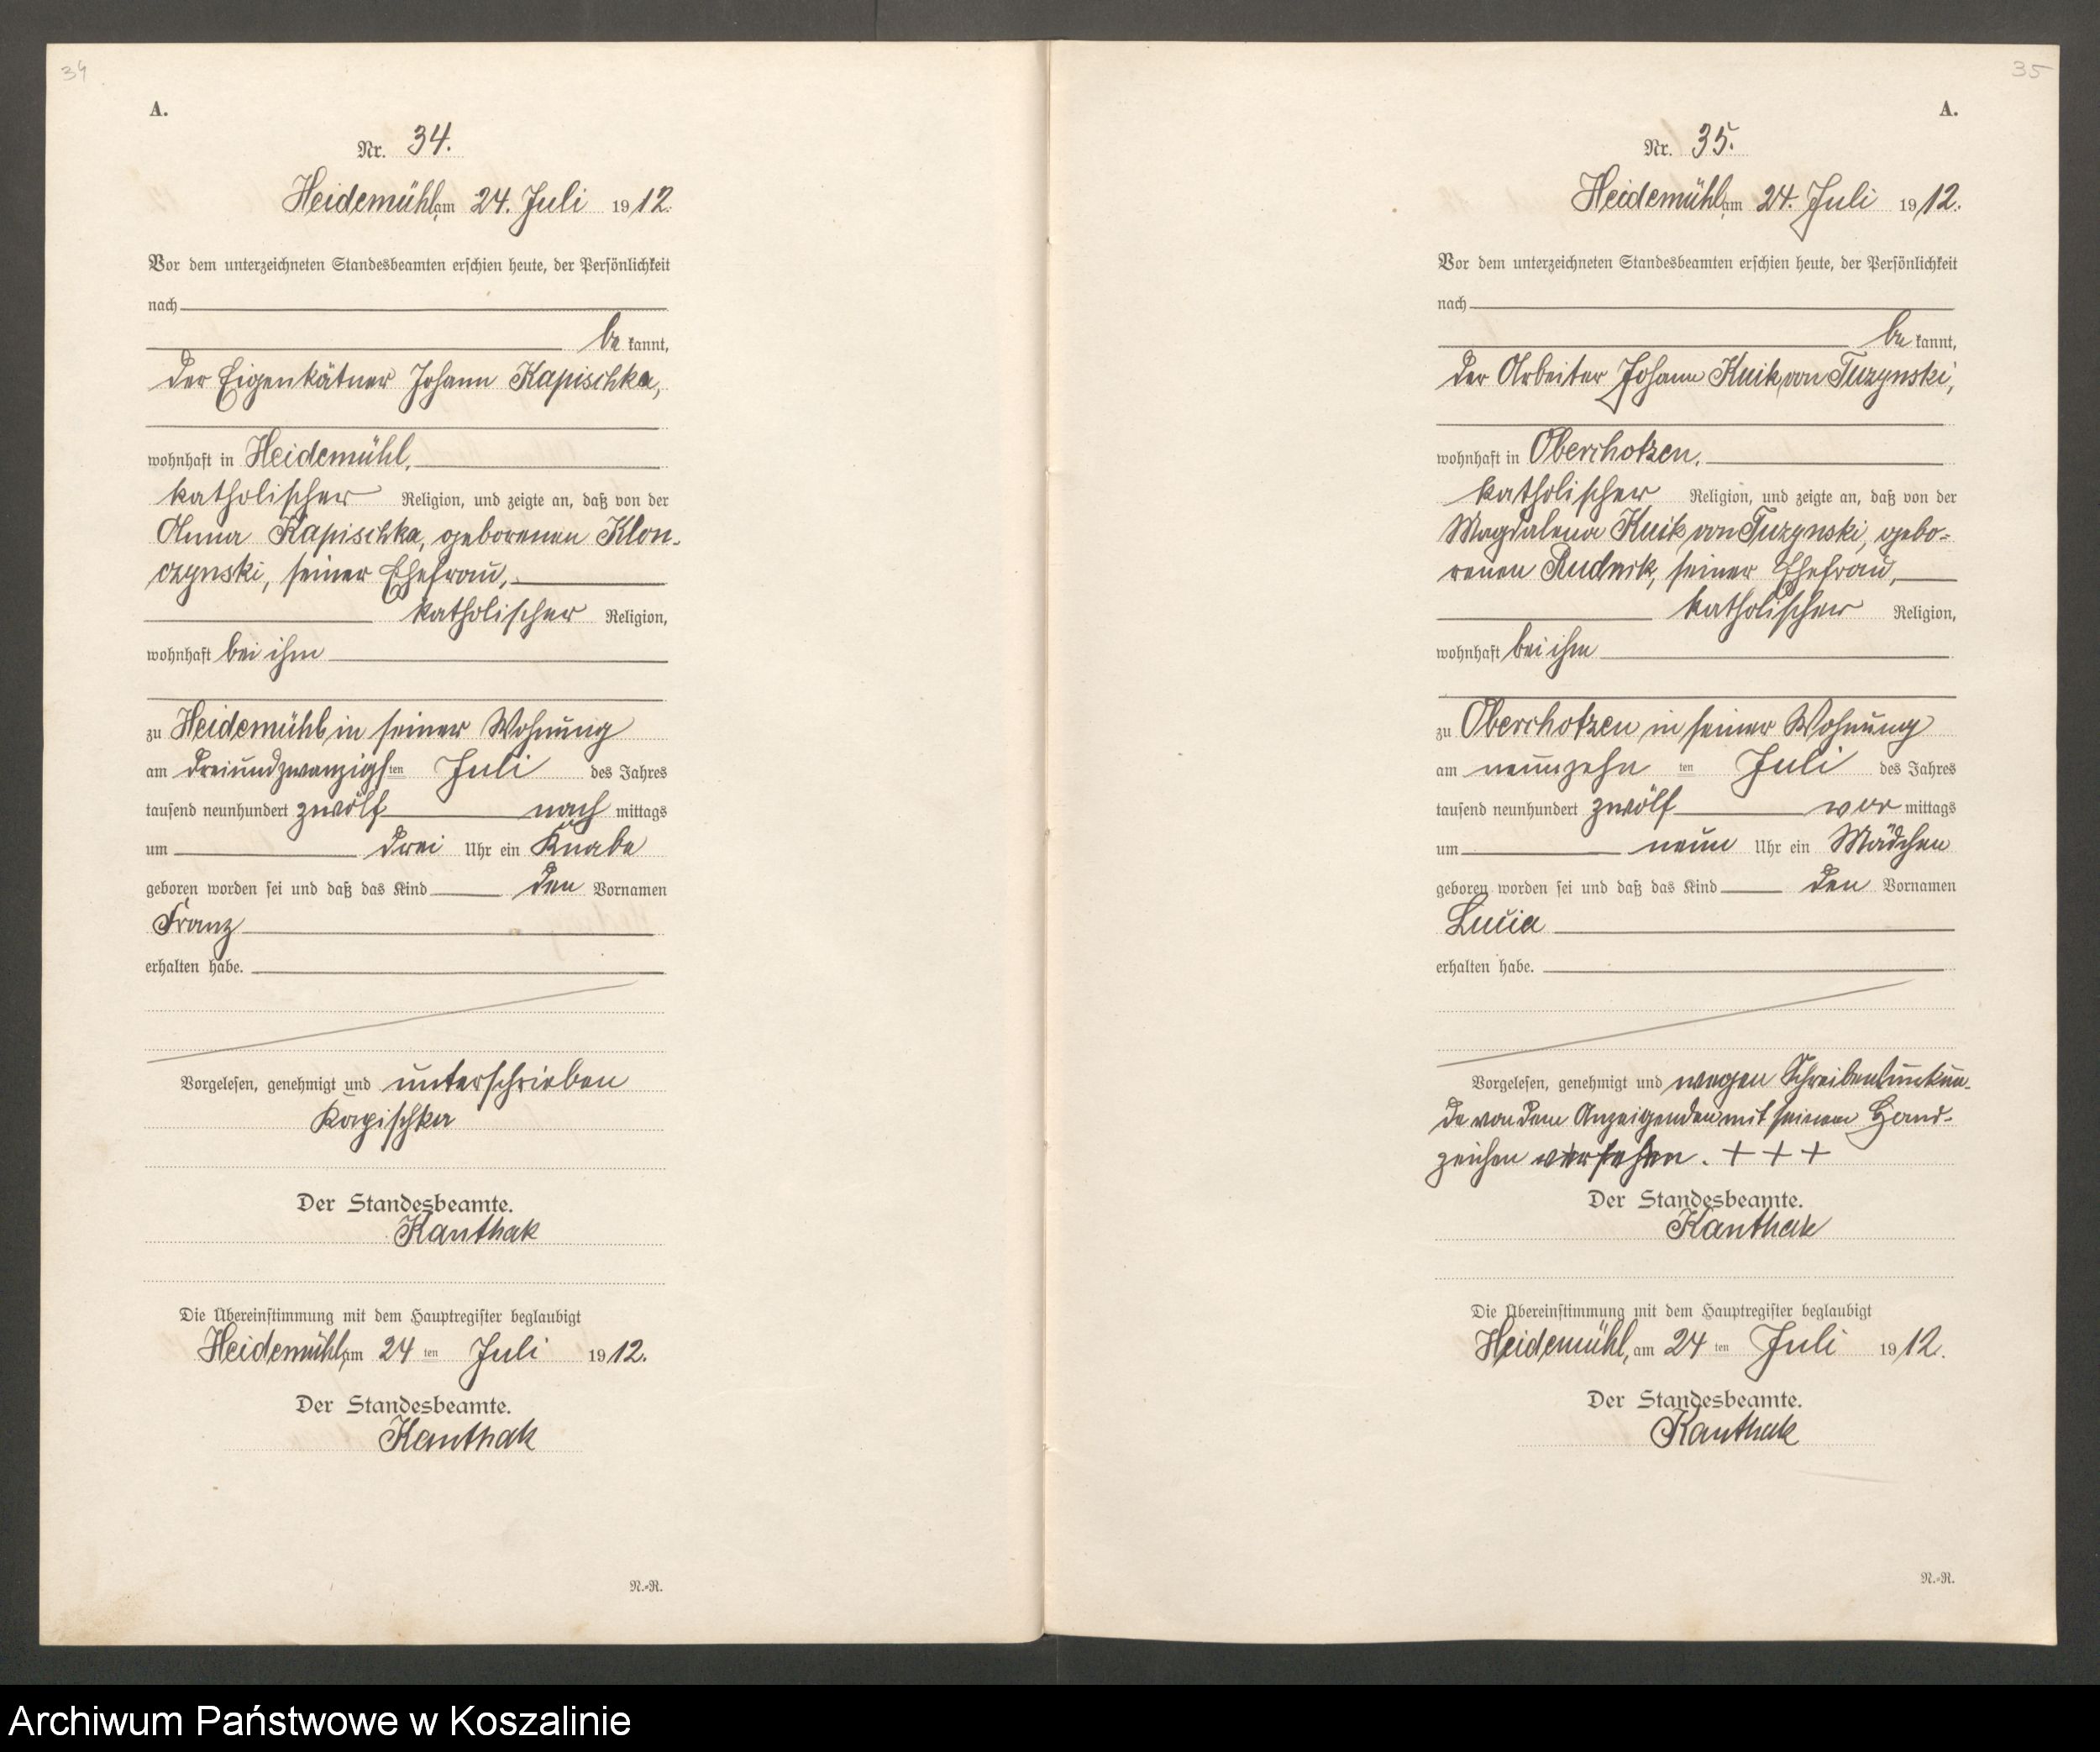 34
A.
Nr. 34.
Heidemühl, am 24. Juli 1912.
Vor dem unterzeichneten Standesbeamten erschien heute, der Persönlichkeit
nach
be kannt,
der Eigenkätner Johann Kapischka,
wohnhaft in Heidemühl,
katholischer Religion, und zeigte an, daß von der
Anna Kapischka, geborenen Klon-
czynski, seiner Ehefrau,
katholischer Religion,
wohnhaft bei ihm
zu Heidemühl in seiner Wohnung
am dreiundzwanzigsten Juli des Jahres
tausend neunhundert zwölf nach mittags
um drei Uhr ein Knabe
geboren worden sei und daß das Kind den Vornamen
Franz
erhalten habe.
Vorgelesen, genehmigt und unterschrieben
Kapischka
Der Standesbeamte.
Kanthak
Die Übereinstimmung mit dem Hauptregister beglaubigt
Heidemühl, am 24 ten Juli 1912.
Der Standesbeamte.
Kanthak
N.-R.
35
A.
Nr. 35.
Heidemühl, am 24. Juli 1912.
Vor dem unterzeichneten Standesbeamten erschien heute, der Persönlichkeit
nach
be kannt,
der Arbeiter Johann Kuik von Tuzynski,
wohnhaft in Oberchotzen,
katholischer Religion, und zeigte an, daß von der
Magdalena Kuik von Tuzynski, gebo-
renen Rudnik, seiner Ehefrau,
katholischer Religion,
wohnhaft bei ihm
zu Oberchotzen in seiner Wohnung
am neunzehn ten Juli des Jahres
tausend neunhundert zwölf vor mittags
um neun Uhr ein Mädchen
geboren worden sei und daß das Kind den Vornamen
Lucia
erhalten habe.
Vorgelesen, genehmigt und wegen Schreibensunkun-
de von dem Anzeigenden mit seinem Hand-
zeichen versehen. + + +
Der Standesbeamte.
Kanthak
Die Übereinstimmung mit dem Hauptregister beglaubigt
Heidemühl, am 24 ten Juli 1912.
Der Standesbeamte.
Kanthak
N.-R.
Archiwum Państwowe w Koszalinie